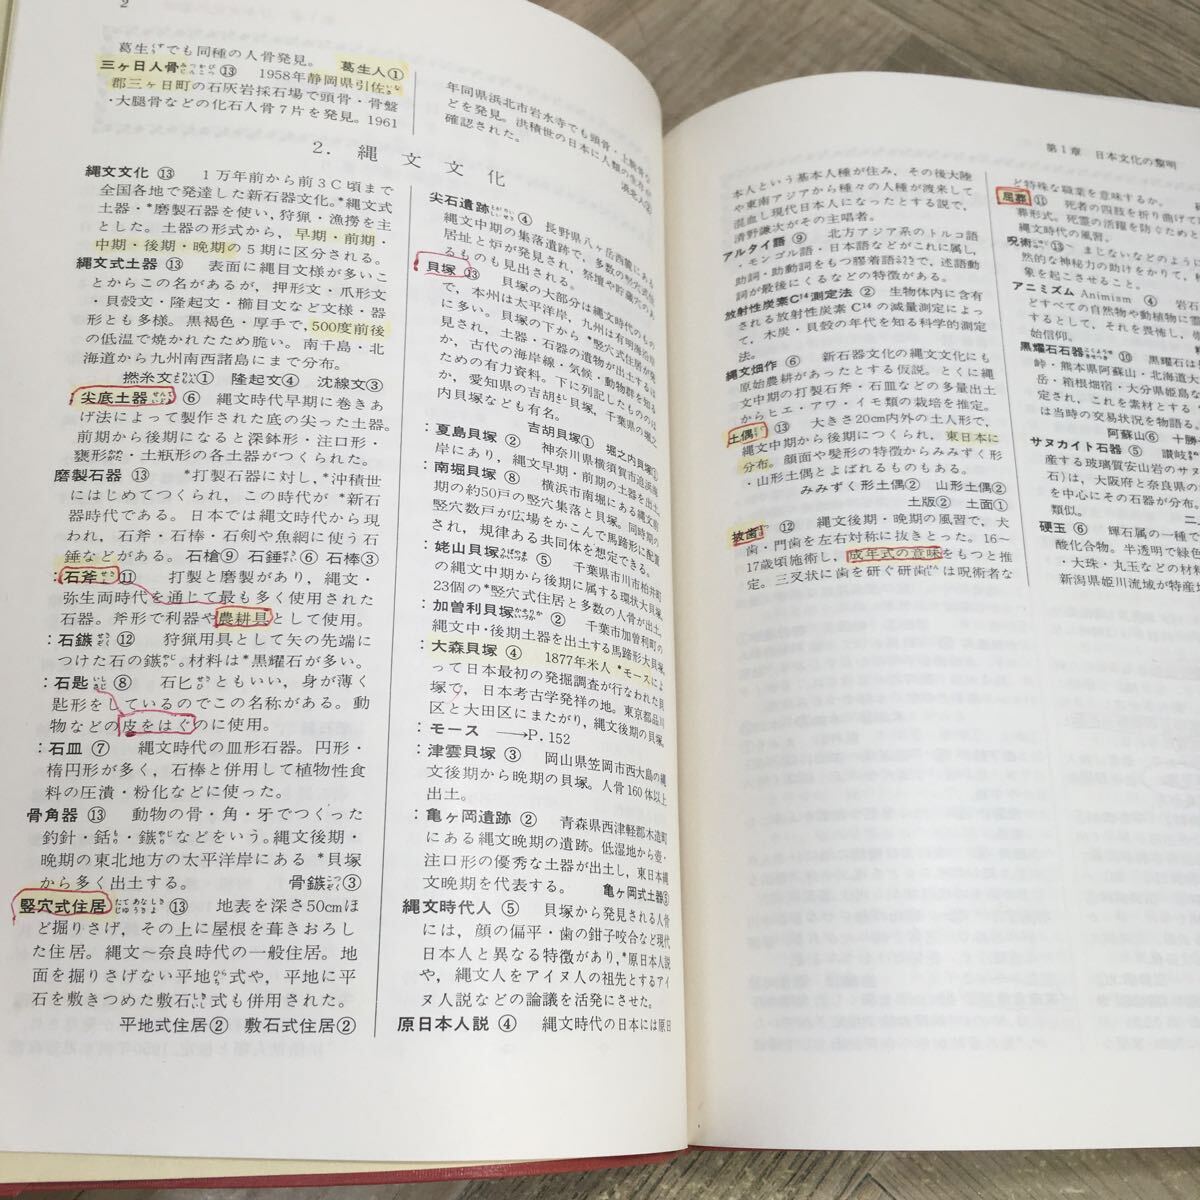 2
葛生でも同種の人骨発見。 葛生人①
三ヶ日人骨 ⑬ 1958年静岡県引佐
郡三ヶ日町の石灰岩採石場で頭骨・骨盤
・大腿骨などの化石人骨7片を発見。1961
年同県浜北市岩水寺でも頭骨・上腕骨な
どを発見。洪積世の日本に人類の生存が
確認された。 浜北人②
2. 縄文文化
縄文文化 ⑬ 1万年前から前3C頃まで
全国各地で発達した新石器文化。*縄文式
土器・*磨製石器を使い,狩猟・漁撈を主
とした。土器の形式から,早期・前期・
中期・後期・晩期の5期に区分される。
縄文式土器 ⑬ 表面に縄目文様が多いこ
とからこの名があるが,押形文・爪形文
・貝殻文・隆起文・櫛目文など文様・器
形とも多様。黒褐色・厚手で,500度前後
の低温で焼かれたため脆い。南千島・北
海道から九州南西諸島にまで分布。
撚糸文① 隆起文④ 沈線文③
尖底土器 ⑥ 縄文時代早期に巻きあ
げ法によって製作された底の尖った土器。
前期から後期になると深鉢形・注口形・
甕形・土瓶形の各土器がつくられた。
磨製石器 ⑬ *打製石器に対し,*沖積世
にはじめてつくられ,この時代が*新石
器時代である。日本では縄文時代から現
われ,石斧・石棒・石剣や魚網に使う石
錘などがある。石槍⑨ 石錘⑥ 石棒③
:石斧 ⑪ 打製と磨製があり,縄文・
弥生両時代を通じて最も多く使用された
石器。斧形で利器や農耕具として使用。
:石鏃 ⑫ 狩猟用具として矢の先端に
つけた石の鏃。材料は*黒耀石が多い。
:石匙 ⑧ 石匕ともいい,身が薄く
匙形をしているのでこの名称がある。動
物などの皮をはぐのに使用。
:石皿 ⑦ 縄文時代の皿形石器。円形・
楕円形が多く,石棒と併用して植物性食
料の圧潰・粉化などに使った。
骨角器 ⑬ 動物の骨・角・牙でつくった
釣針・銛・鏃などをいう。縄文後期・
晩期の東北地方の太平洋岸にある*貝塚
から多く出土する。 骨鏃③
竪穴式住居 ⑬ 地表を深さ50cmほ
ど掘りさげ,その上に屋根を葺きおろし
た住居。縄文〜奈良時代の一般住居。地
面を掘りさげない平地式や,平地に平
石を敷きつめた敷石式も併用された。
平地式住居② 敷石式住居②
尖石遺跡 ④ 長野県八ヶ岳西麓にある
縄文中期の集落遺跡で,多数の竪穴式住
居址と炉が発見され,祭壇や貯蔵穴のあ
るものも見出される。
貝塚 ⑬ 貝塚の大部分は縄文時代のもの
で,本州は太平洋岸,九州は有明海沿岸
に多い。貝塚の下から*竪穴式住居が発
見され,土器・石器の遺物が出土するほ
か,古代の海岸線・気候・動物群を知る
ための有力資料。下に列記したもののほ
か,愛知県の吉胡貝塚,千葉県の堀之
内貝塚なども有名。
吉胡貝塚① 堀之内貝塚①
:夏島貝塚 ② 神奈川県横須賀市追浜海
岸にあり,縄文早期・前期の土器を出土。
:南堀貝塚 ⑧ 横浜市南堀にある縄文前
期の約50戸の竪穴集落と貝塚。同時期の
竪穴数戸が広場をかこんで馬蹄形に配置
され,規律ある共同体を想定できる。
:姥山貝塚 ⑤ 千葉県市川市柏井町
の縄文中期から後期に属する環状大貝塚。
23個の*竪穴式住居と多数の人骨が出土。
:加曽利貝塚 ② 千葉市加曽利町の
縄文中・後期土器を出土する馬蹄形大貝塚。
:大森貝塚 ④ 1877年米人*モースによ
って日本最初の発掘調査が行なわれた貝
塚で,日本考古学発祥の地。東京都品川
区と大田区にまたがり,縄文後期の貝塚。
:モース ⟶P. 152
:津雲貝塚 ③ 岡山県笠岡市西大島の縄
文後期から晩期の貝塚。人骨160体以上
出土。
:亀ヶ岡遺跡 ② 青森県西津軽郡木造町
にある縄文晩期の遺跡。低湿地から壺・
注口形の優秀な土器が出土し,東日本縄
文晩期を代表する。 亀ヶ岡式土器③
縄文時代人 ⑤ 貝塚から発見される人骨
には,顔の偏平・歯の鉗子咬合など現代
日本人と異なる特徴があり,*原日本人説
や,縄文人をアイヌ人の祖先とするアイ
ヌ人説などの論議を活発にさせた。
原日本人説 ④ 縄文時代の日本には原日
第1章 日本文化の黎明
本人という基本人種が住み,その後大陸
や東南アジアから種々の人種が渡来して
混血し現代日本人になったとする説で,
清野謙次がその主唱者。
アルタイ語 ⑨ 北方アジア系のトルコ語
・モンゴル語・日本語などがこれに属し,
助詞・助動詞をもつ膠着語で,述語動
詞が最後にくるなどの特徴がある。
放射性炭素C¹⁴測定法 ② 生物体内に含有
される放射性炭素C¹⁴の減量測定によっ
て,木炭・貝殻の年代を知る科学的測定
法。
縄文畑作 ⑥ 新石器文化の縄文文化にも
原始農耕があったとする仮説。とくに縄
文中期の打製石斧・石皿などの多量出土
からヒエ・アワ・イモ類の栽培を推定。
土偶 ⑬ 大きさ20cm内外の土人形で,
縄文中期から後期につくられ,東日本に
分布。顔面や髪形の特徴からみみずく形
・山形土偶とよばれるものもある。
みみずく形土偶② 山形土偶②
土版② 土面①
抜歯 ⑫ 縄文後期・晩期の風習で,犬
歯・門歯を左右対称に抜きとった。16〜
17歳頃施術し,成年式の意味をもつと推
定。三叉状に歯を研ぐ研歯は呪術者な
ど特殊な職業を意味するか。
屈葬 ⑪ 死者の四肢を折り曲げて
葬形式。死霊の活躍を防ぐためと
縄文時代の風習。
呪術 ⑬ まじないなどのように
然的な神秘力の助けをかりて,
象を起こさせること。
アニミズム Animism ④ 岩石
どすべての自然物や動植物に霊
るとして,それを畏怖し,崇
始信仰。
黒耀石石器 ⑩ 黒耀石は長
峠・熊本県阿蘇山・北海道
岳・箱根畑宿・大分県姫島な
定され,これを素材とする
は当時の交易状況を物語る。
阿蘇山⑥ 十勝
サヌカイト石器 ⑤ 讃岐
産する玻璃質安山岩のサ
石)は,大阪府と奈良県の
を中心にその石器が分布。
類似。
硬玉 ⑥ 輝石属の一種
酸化合物。半透明で緑色
・大珠・丸玉などの材料
新潟県姫川流域が特産